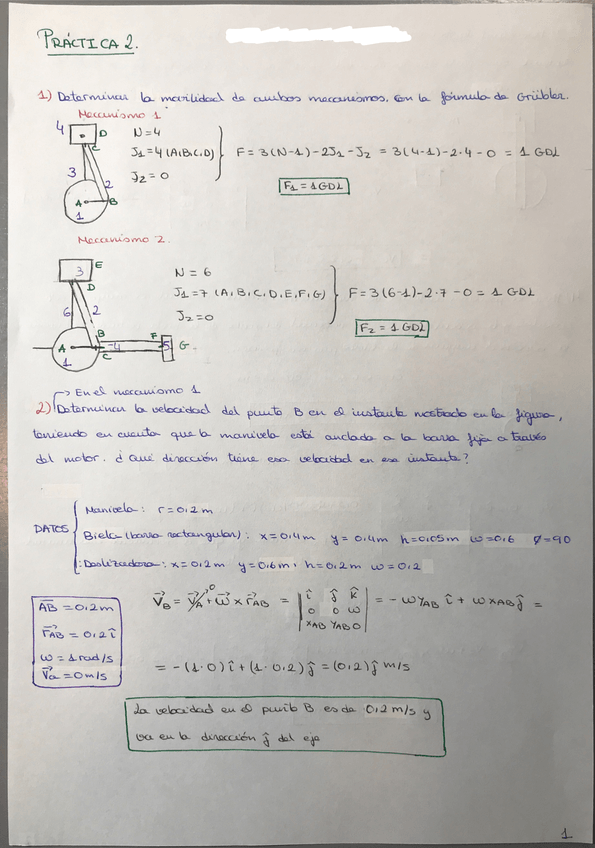 PRÁCTICA 2.
1) Determinar la movilidad de ambos mecanismos, con la fórmula de Grübler.
Mecanismo 1
4 D C 3 2 A B 1
N=4
J1=4 (A,B,C,D)
J2=0
F=3(N-1)-2J1-J2 = 3(4-1)-2·4-0 = 1 GDL
F1=1GDL
Mecanismo 2.
3 E D 6 2 B A C 4 F 5 G 1
N=6
J1=7 (A,B,C,D,E,F,G)
J2=0
F=3(6-1)-2·7-0=1 GDL
F2=1GDL
En el mecanismo 1
2) Determinar la velocidad del punto B en el instante mostrado en la figura,
teniendo en cuenta que la manivela está anclada a la barra fija a través
del motor. ¿Qué dirección tiene esa velocidad en ese instante?
DATOS
Manivela: r=0,2m
Biela (barra rectangular): x=0,4m y=0,4m h=0,05m w=0,6 Ø=90
Deslizadora: x=0,2m y=0,6m, h=0,2m w=0,2
AB=0,2m
r⃗AB=0,2î
ω=1rad/s
V⃗a=0m/s
V⃗B = V⃗A⁰ + ω⃗ × r⃗AB = | î ĵ k̂ | = -ωyAB î + ωxAB ĵ =
0 0 ω
xAB yAB 0
= -(1·0)î+(1·0,2)ĵ=(0,2)ĵ m/s
La velocidad en el punto B es de 0,2m/s y
va en la dirección ĵ del eje
1